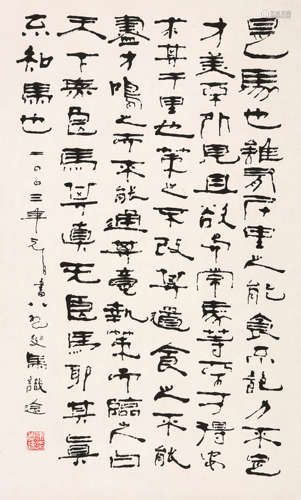 是馬也雖有千里之能食不飽力不足
才美不外見且欲与常馬等不可得安
求其千里也策之不以其道食之不能
盡才鳴之而不能通其意執策而臨之曰
天下無良馬其真无良馬耶其真
不知馬也 二〇〇三年元月書 八九叟馬識途